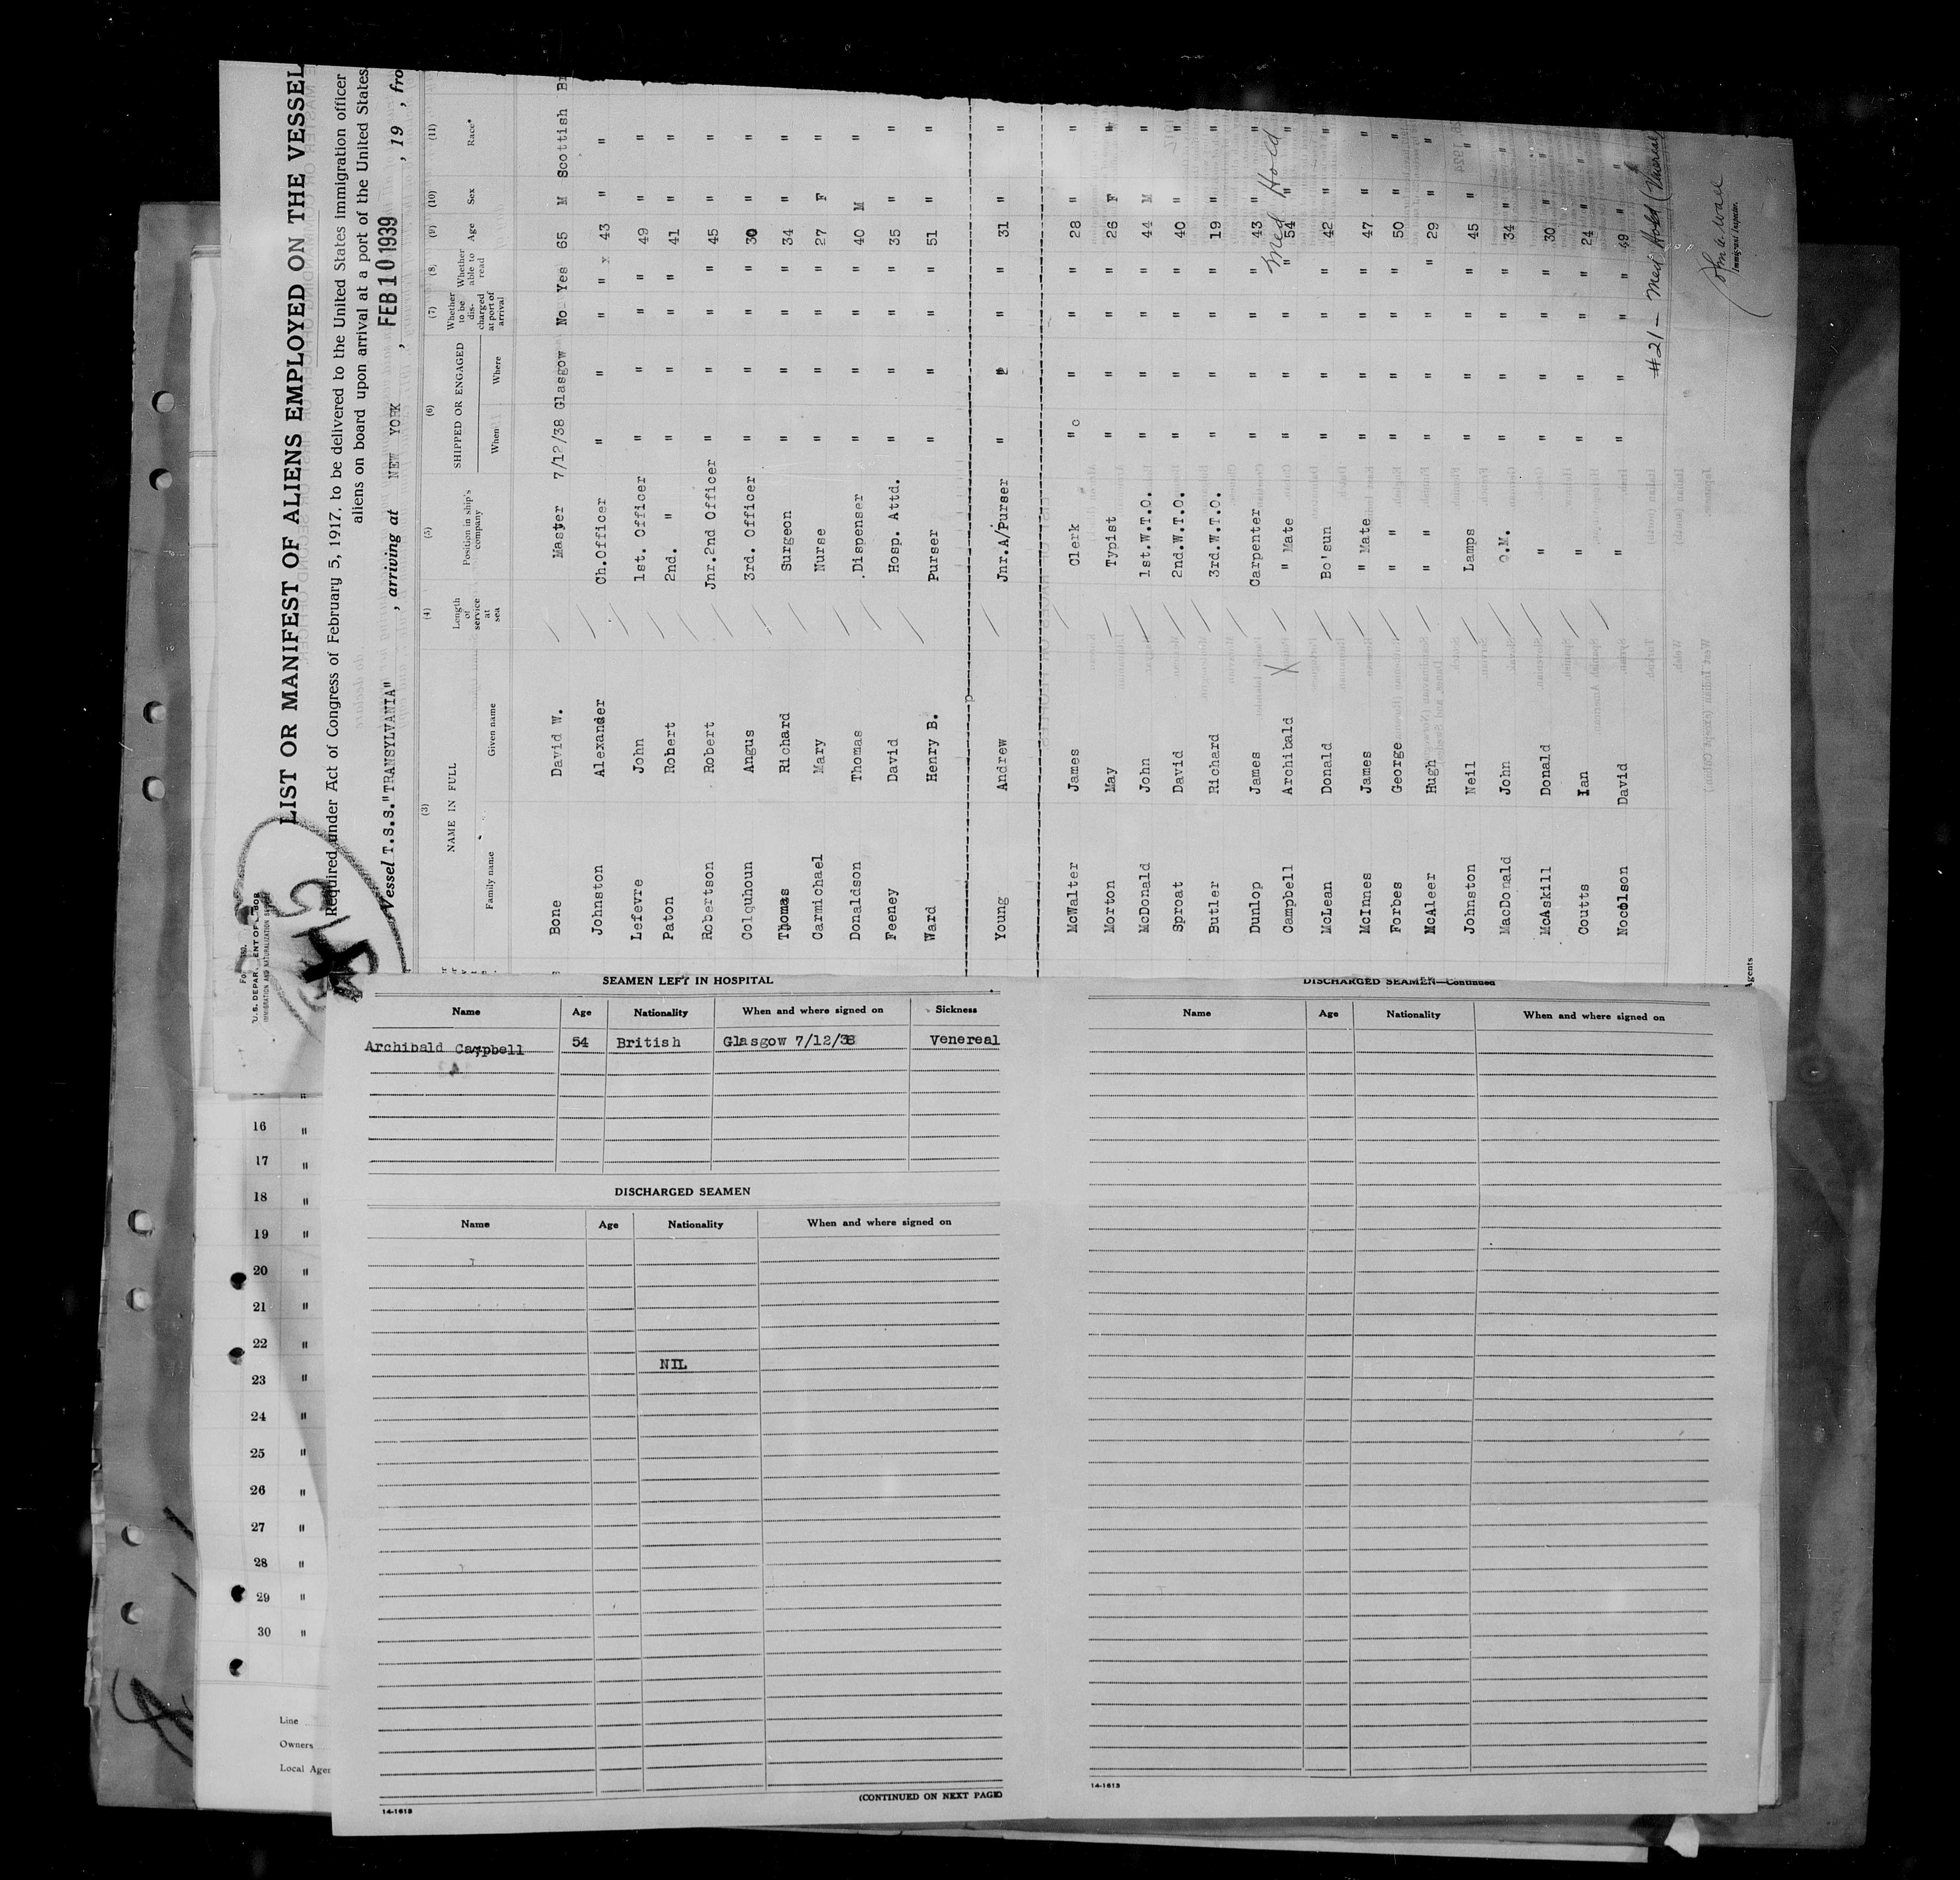 Form 680
U.S. DEPARTMENT OF LABOR
IMMIGRATION AND NATURALIZATION SERVICE
LIST OR MANIFEST OF ALIENS EMPLOYED ON THE VESSEL
Required under Act of Congress of February 5, 1917, to be delivered to the United States immigration officer
aliens on board upon arrival at a port of the United States
Vessel T.S.S."TRANSYLVANIA" , arriving at NEW YORK , FEB 10 1939 , 19 , fro
(3) (4) (5) (6) (7) (8) (9) (10) (11)
NAME IN FULL Length of service at sea Position in ship's company SHIPPED OR ENGAGED Whether to be discharged at port of arrival Whether able to read Age Sex Race*
Family name Given name When Where
Bone David W. Master 7/12/38 Glasgow No Yes 65 M Scottish Br
Johnston Alexander Ch.Officer " " " " 43 " "
Lefevre John 1st. Officer " " " " 49 " "
Paton Robert 2nd. " " " " " 41 " "
Robertson Robert Jnr.2nd Officer " " " " 45 " "
Colquhoun Angus 3rd. Officer " " " " 30 " "
Thomas Richard Surgeon " " " " 34 " "
Carmichael Mary Nurse " " " " 27 F "
Donaldson Thomas Dispenser " " " " 40 M "
Feeney David Hosp. Attd. " " " " 35 " "
Ward Henry B. Purser " " " " 51 " "
Young Andrew Jnr.A/Purser " " " " 31 " "
McWalter James Clerk " " " " 28 " "
Morton May Typist " " " " 26 F "
McDonald John 1st.W.T.O. " " " " 44 M "
Sproat David 2nd.W.T.O. " " " " 40 " "
Butler Richard 3rd.W.T.O. " " " " 19 " "
Dunlop James Carpenter " " " " 43 " "
Campbell Archibald X " Mate " " " " 54 " " Med Hold
McLean Donald Bo'sun " " " " 42 " "
McInnes James " Mate " " " " 47 " "
Forbes George " " " " " " 50 " "
McAleer Hugh " " " " " " 29 " "
Johnston Neil Lamps " " " " 45 " "
MacDonald John Q.M. " " " " 34 " "
McAskill Donald " " " " " 30 " "
Coutts Ian " " " " " 24 " "
Nocolson David " " " " " 49 " "
#21 - Med Hold (Venereal
Immigrant Inspector.
Agents
SEAMEN LEFT IN HOSPITAL
Name Age Nationality When and where signed on Sickness
Archibald Campbell 54 British Glasgow 7/12/38 Venereal
DISCHARGED SEAMEN
Name Age Nationality When and where signed on
NIL
(CONTINUED ON NEXT PAGE)
14-1613
DISCHARGED SEAMEN—Continued
Name Age Nationality When and where signed on
14-1613
16 "
17 "
18 "
19 "
20 "
21 "
22 "
23 "
24 "
25 "
26 "
27 "
28 "
29 "
30 "
Line
Owners
Local Agen